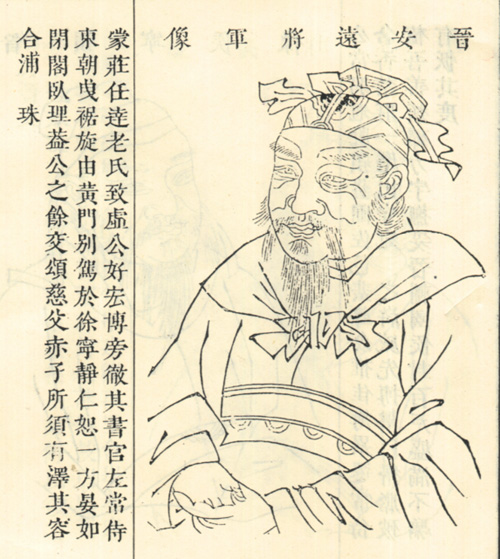 晉安遠將軍像
蒙莊任逹老氏致虛公好宏博旁徹其書官左常侍
東朝曵裾旋由黃門別駕於徐寧靜仁恕一方晏如
閉閣臥理葢公之餘交頌慈父赤子所須有澤其容
合浦 珠